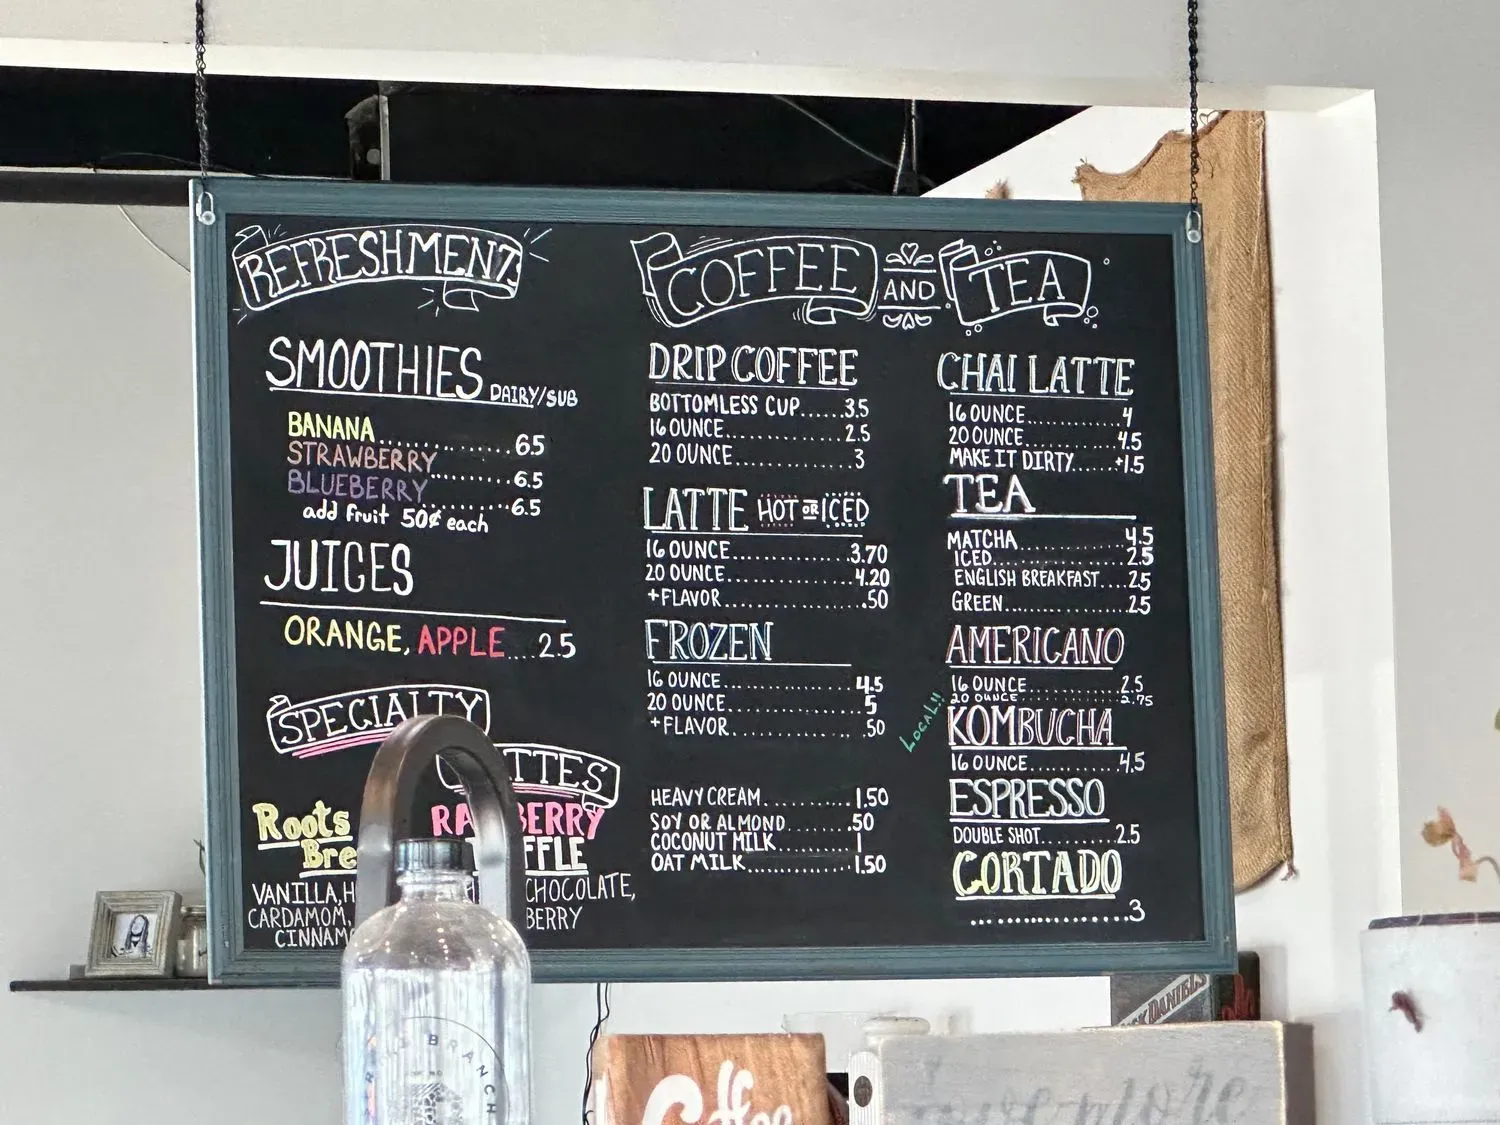 REFRESHMENTS
SMOOTHIES DAIRY/SUB
BANANA..................6.5
STRAWBERRY..........6.5
BLUEBERRY...........6.5
add fruit 50¢ each
JUICES
ORANGE, APPLE....2.5
SPECIALTY
Roots
VANILLA,
CARDAMOM,
COFFEE AND TEA
DRIP COFFEE
BOTTOMLESS CUP......3.5
16 OUNCE...............2.5
20 OUNCE...............3
LATTE HOT OR ICED
16 OUNCE...............3.70
20 OUNCE...............4.20
+FLAVOR.................50
FROZEN
16 OUNCE...............4.5
20 OUNCE...............5
+FLAVOR.................50
HEAVY CREAM...........1.50
SOY OR ALMOND........50
COCONUT MILK..........1
OAT MILK..............1.50
LOCAL!!
CHAI LATTE
16 OUNCE.............4
20 OUNCE.............4.5
MAKE IT DIRTY......+1.5
TEA
MATCHA...............4.5
ICED....................2.5
ENGLISH BREAKFAST....2.5
GREEN..................2.5
AMERICANO
16 OUNCE.............2.5
20 OUNCE.............2.75
KOMBUCHA
16 OUNCE.............4.5
ESPRESSO
DOUBLE SHOT..........2.5
CORTADO
...................3
CHOCOLATE,
BRANCH
Coffee
DANIEL'S
more